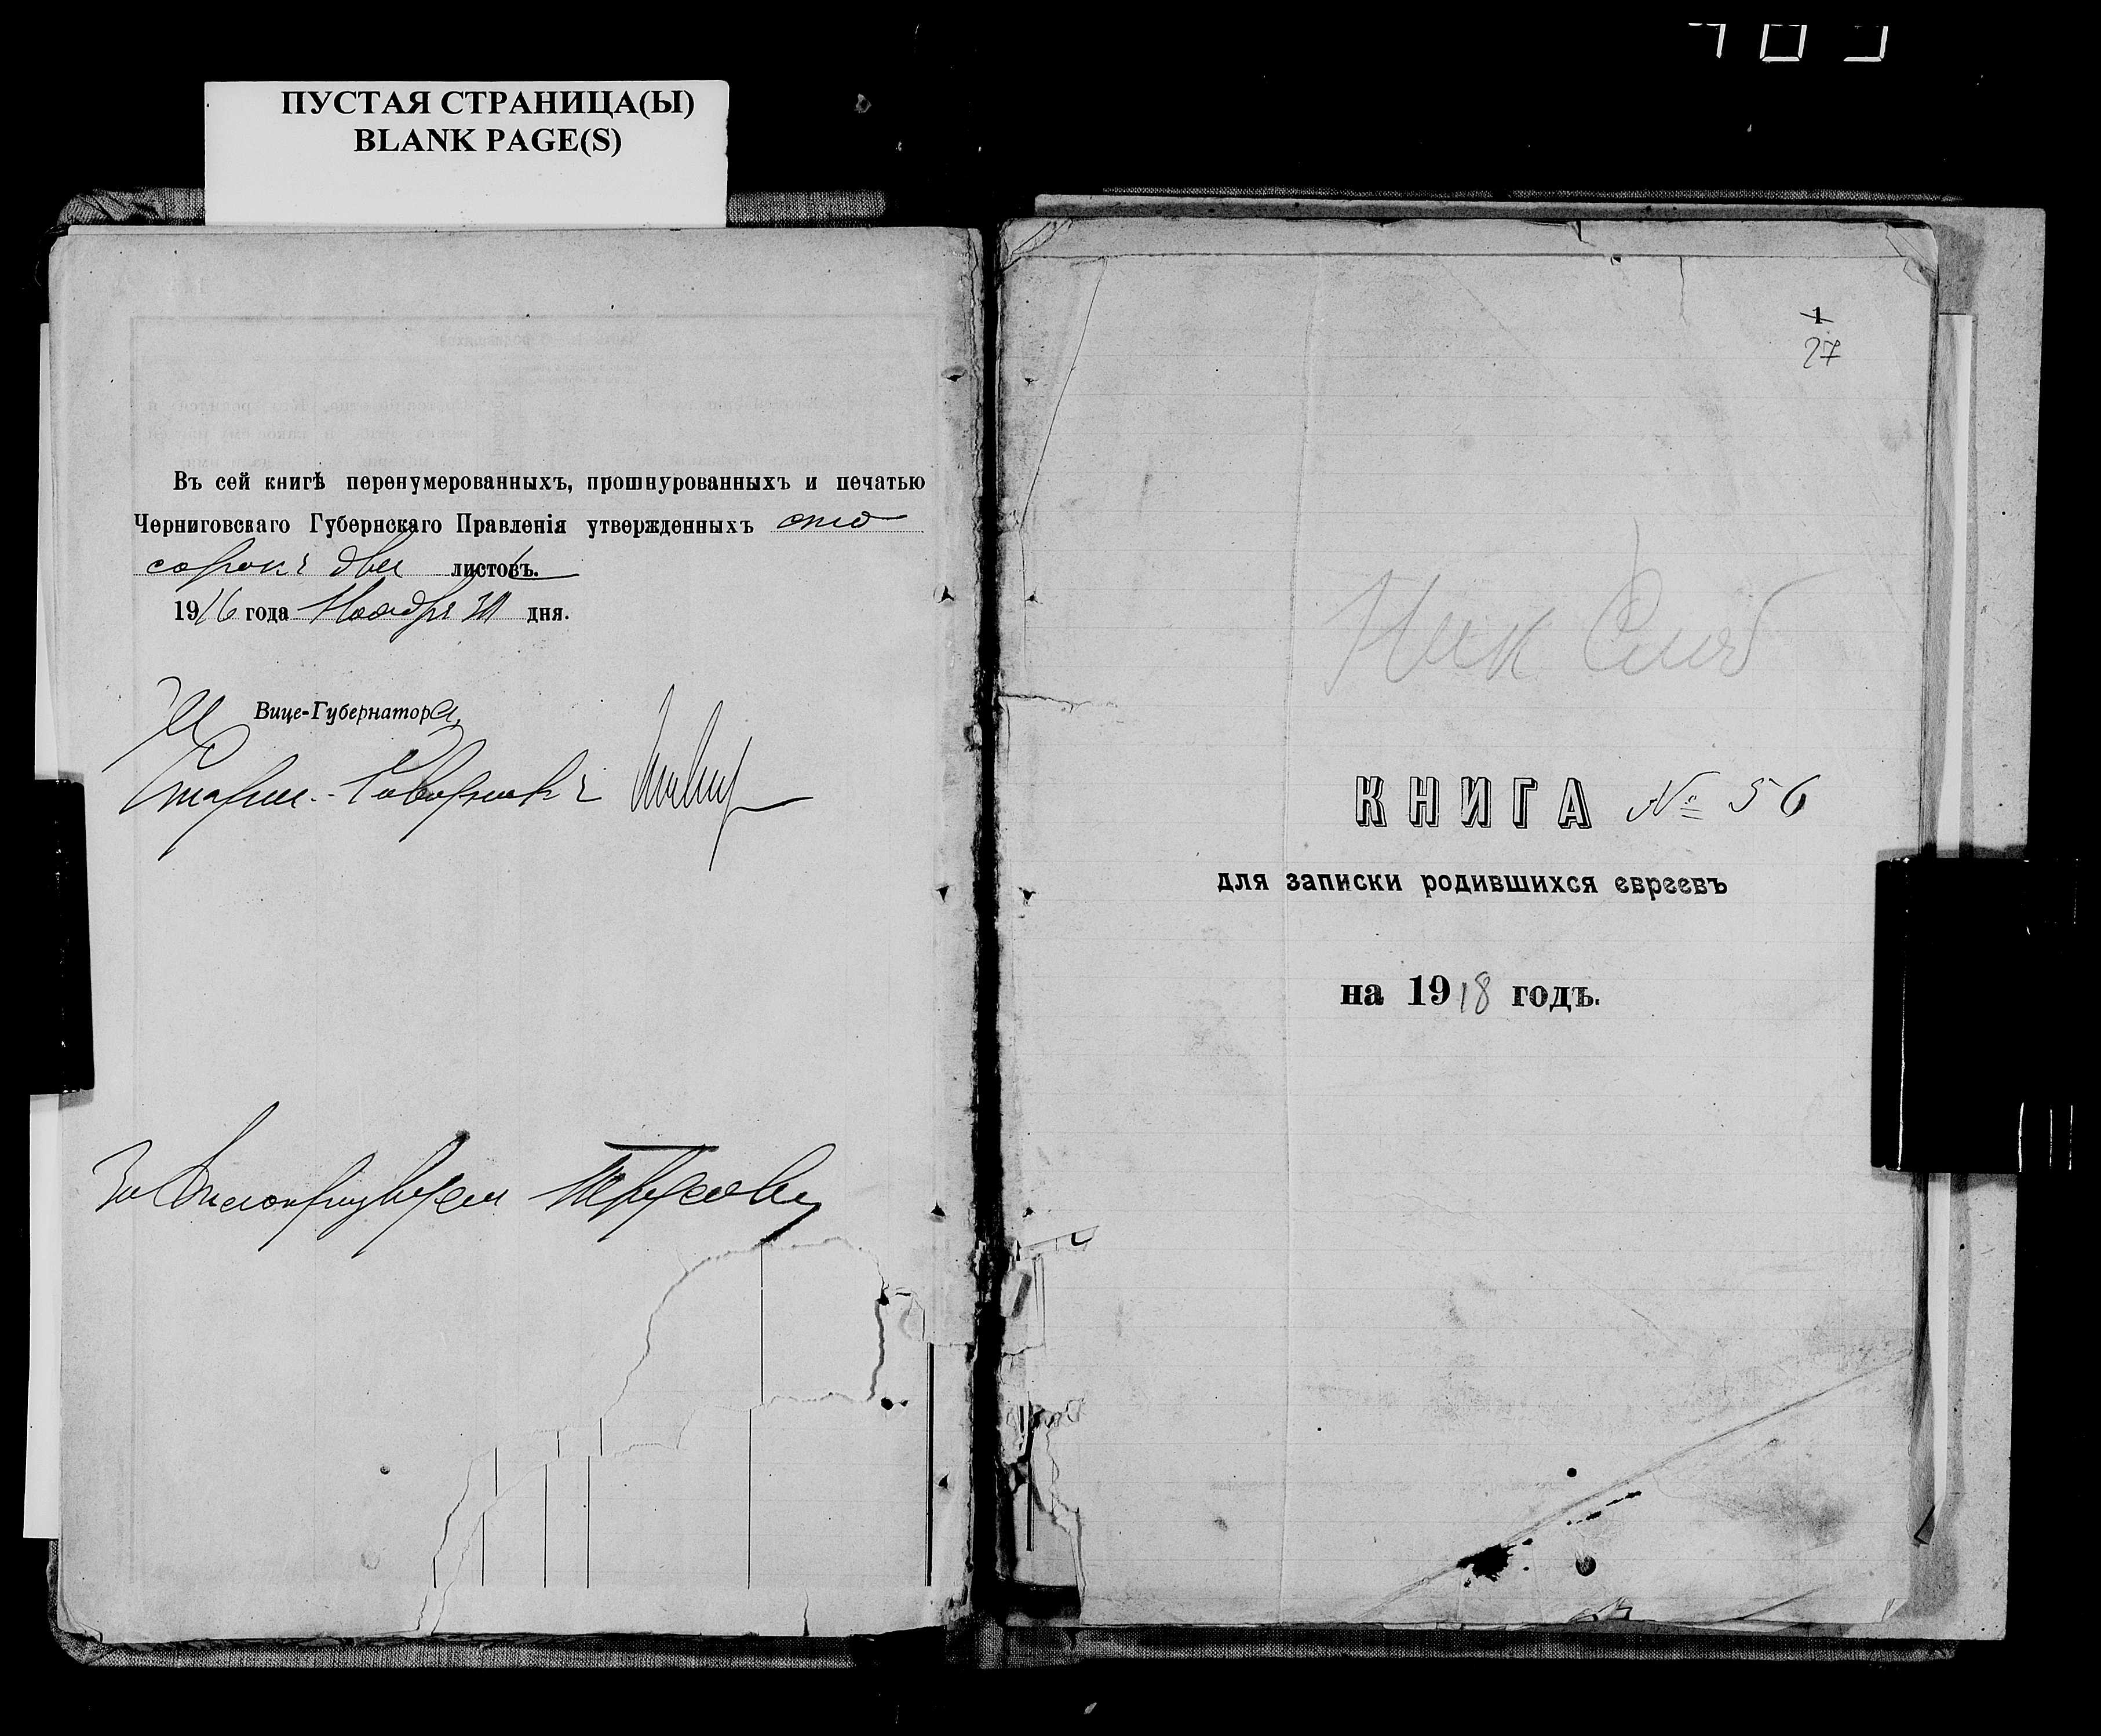 ПУСТАЯ СТРАНИЦА(Ы)
BLANK PAGE(S)
Въ сей книгѣ перенумерованныхъ, прошнурованныхъ и печатью
Черниговскаго Губернскаго Правленія утвержденныхъ сто
сорокъ два листовъ.
1916 года Ноября 30 дня.
За Вице-Губернатора,
Старш.
За
1
27
Ник Слоб
КНИГА № 56
для записки родившихся евреевъ
на 1918 годъ.